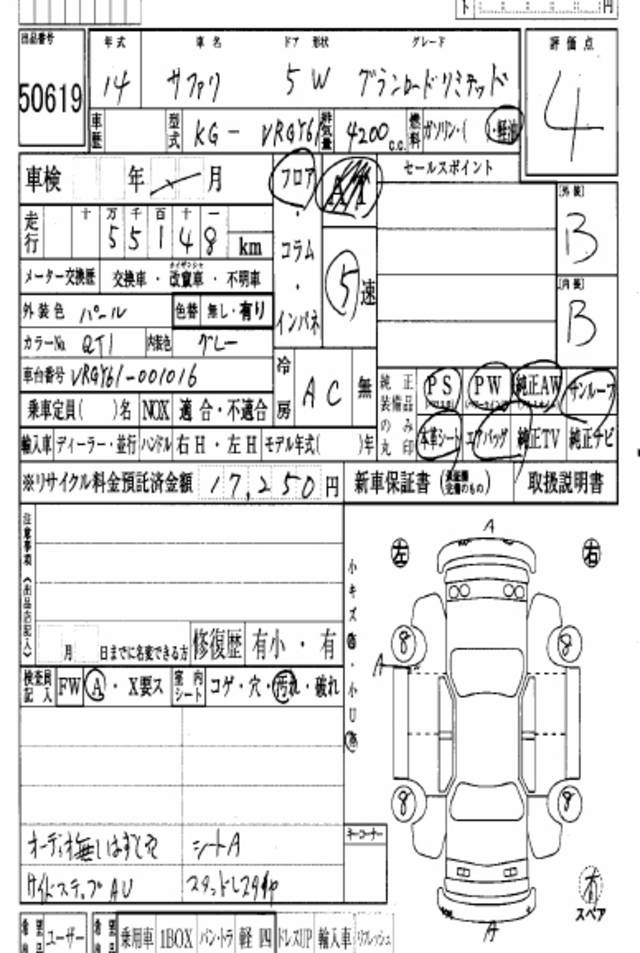 ト 円
出品番号 年式 車名 ドア 形状 グレード 評価点
50619 14 サファリ 5 W グランロードリミテッド 4
車歴 型式 KG- VRGY61 排気量 4200 c.c. 燃料 ガソリン・( )・軽油
車検 年 月 フロア・コラム・インパネ AT セールスポイント
[外装] B
走行 十 万 千 百 十 一
5 5 1 4 8 km 5 速
メーター交換歴 交換車・改竄車・不明車 [内装] B
外装色 パール 色替 無し・有り
カラーNo. QT1 内装色 グレー
車台番号 VRGY61-001016 冷房 AC 無
純正装備品のみ丸印 PS PW 純正AW サンルーフ
乗車定員( )名 NOX 適合・不適合 本革シート エアバッグ 純正TV 純正ナビ
輸入車 ディーラー・並行 ハンドル 右H・左H モデル年式( )年
※リサイクル料金預託済金額 17,250 円 新車保証書 取扱説明書
注意事項(出品店記入)
月 日までに名変できる方 修復歴 有小・有
検査員記入 FW A・X要ス 室内シート コゲ・穴・汚れ・破れ
小キズ
小U
A
左 右
8 8
A
8 8
オーディオ無しはずし シートA
サイドステップAU スタッドレスタイヤ
キーコーナー
有
スペア
A
ユーザー 乗用車 1BOX バン・トラ 軽四 ドレスUP 輸入車 リフレッシュ